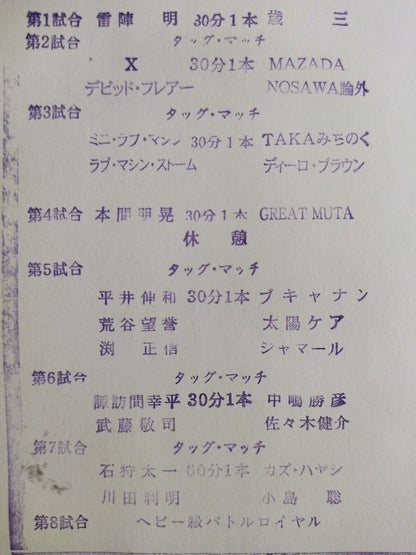 第1試合 雷陣 明 30分1本 歳 三
第2試合 タッグ・マッチ
X 30分1本 MAZADA
デビッド・フレアー NOSAWA論外
第3試合 タッグ・マッチ
ミニ・ラブ・マシン 30分1本 TAKAみちのく
ラブ・マシン・ストーム ディーロ・ブラウン
第4試合 本間明晃 30分1本 GREAT MUTA
休憩
第5試合 タッグ・マッチ
平井伸和 30分1本 ブキャナン
荒谷望誉 太陽ケア
渕 正信 ジャマール
第6試合 タッグ・マッチ
諏訪間幸平 30分1本 中嶋勝彦
武藤敬司 佐々木健介
第7試合 タッグ・マッチ
石狩太一 60分1本 カズ・ハヤシ
川田利明 小島 聡
第8試合 ヘビー級バトルロイヤル